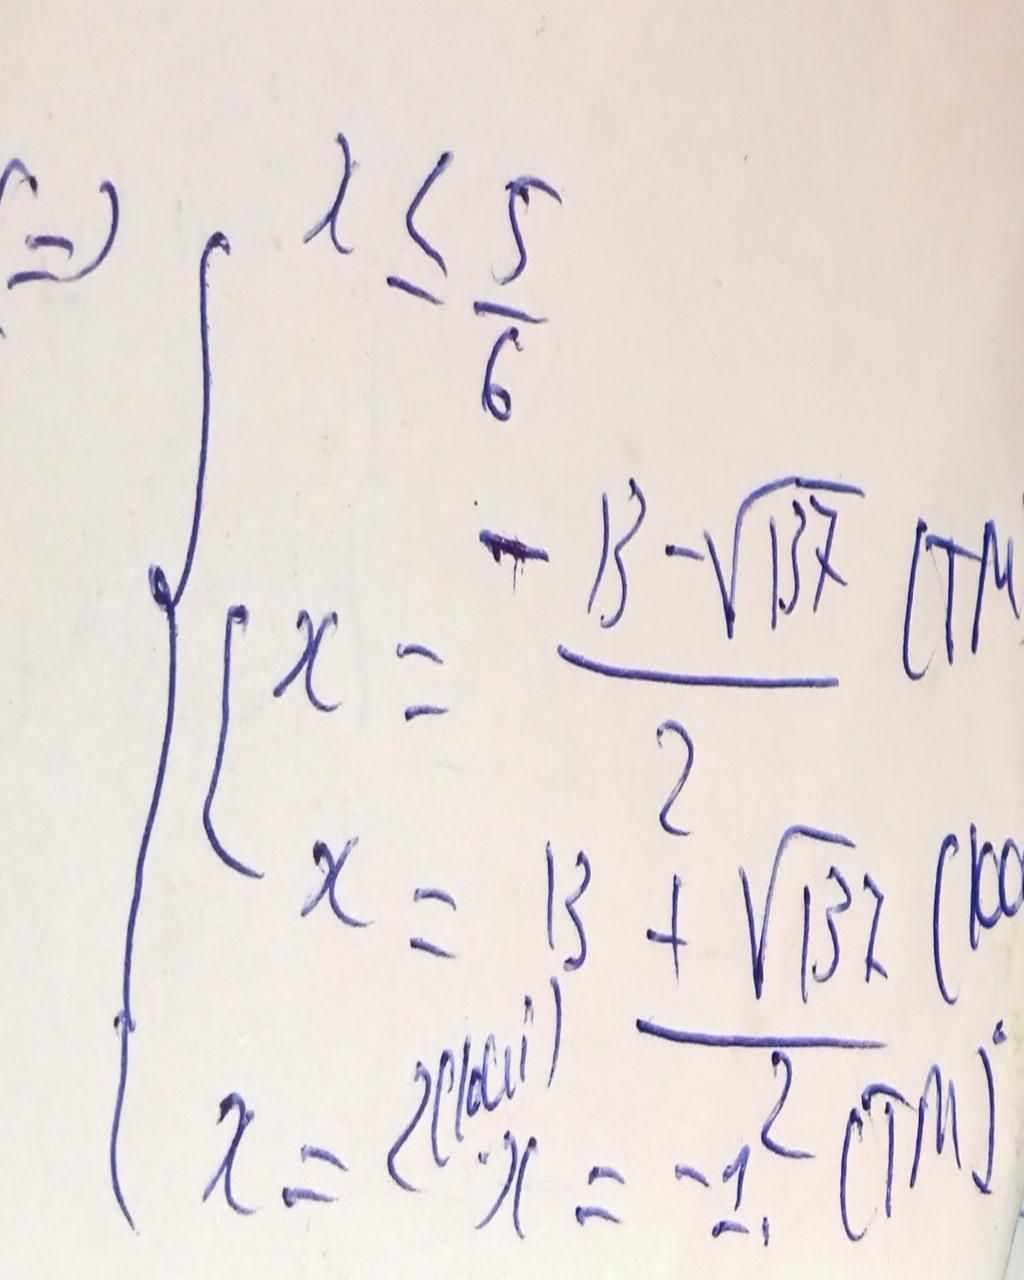 <=> { x ≤ 5/6
[ x = (13 - √137)/2 (TM
x = (13 + √137)/2 (loạ
x = 2 (loại) x = -1. (TM)